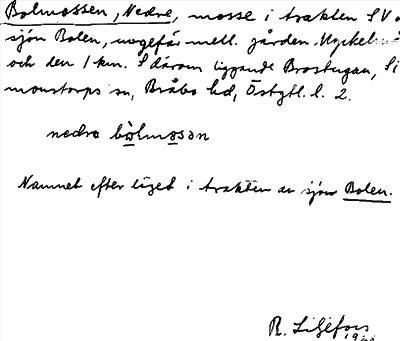 Bolmossen, Nedre, mosse i trakten SV o
sjön Bolen, ungefär mell. gården Nyckelm
och den 1 km. S därom liggande Brostugan, Si
monstorps sn, Bråbo hd, Östgtl. l. 2.
nedre bòlmosan
Namnet efter läget i trakten av sjön Bolen.
R. Liljefors